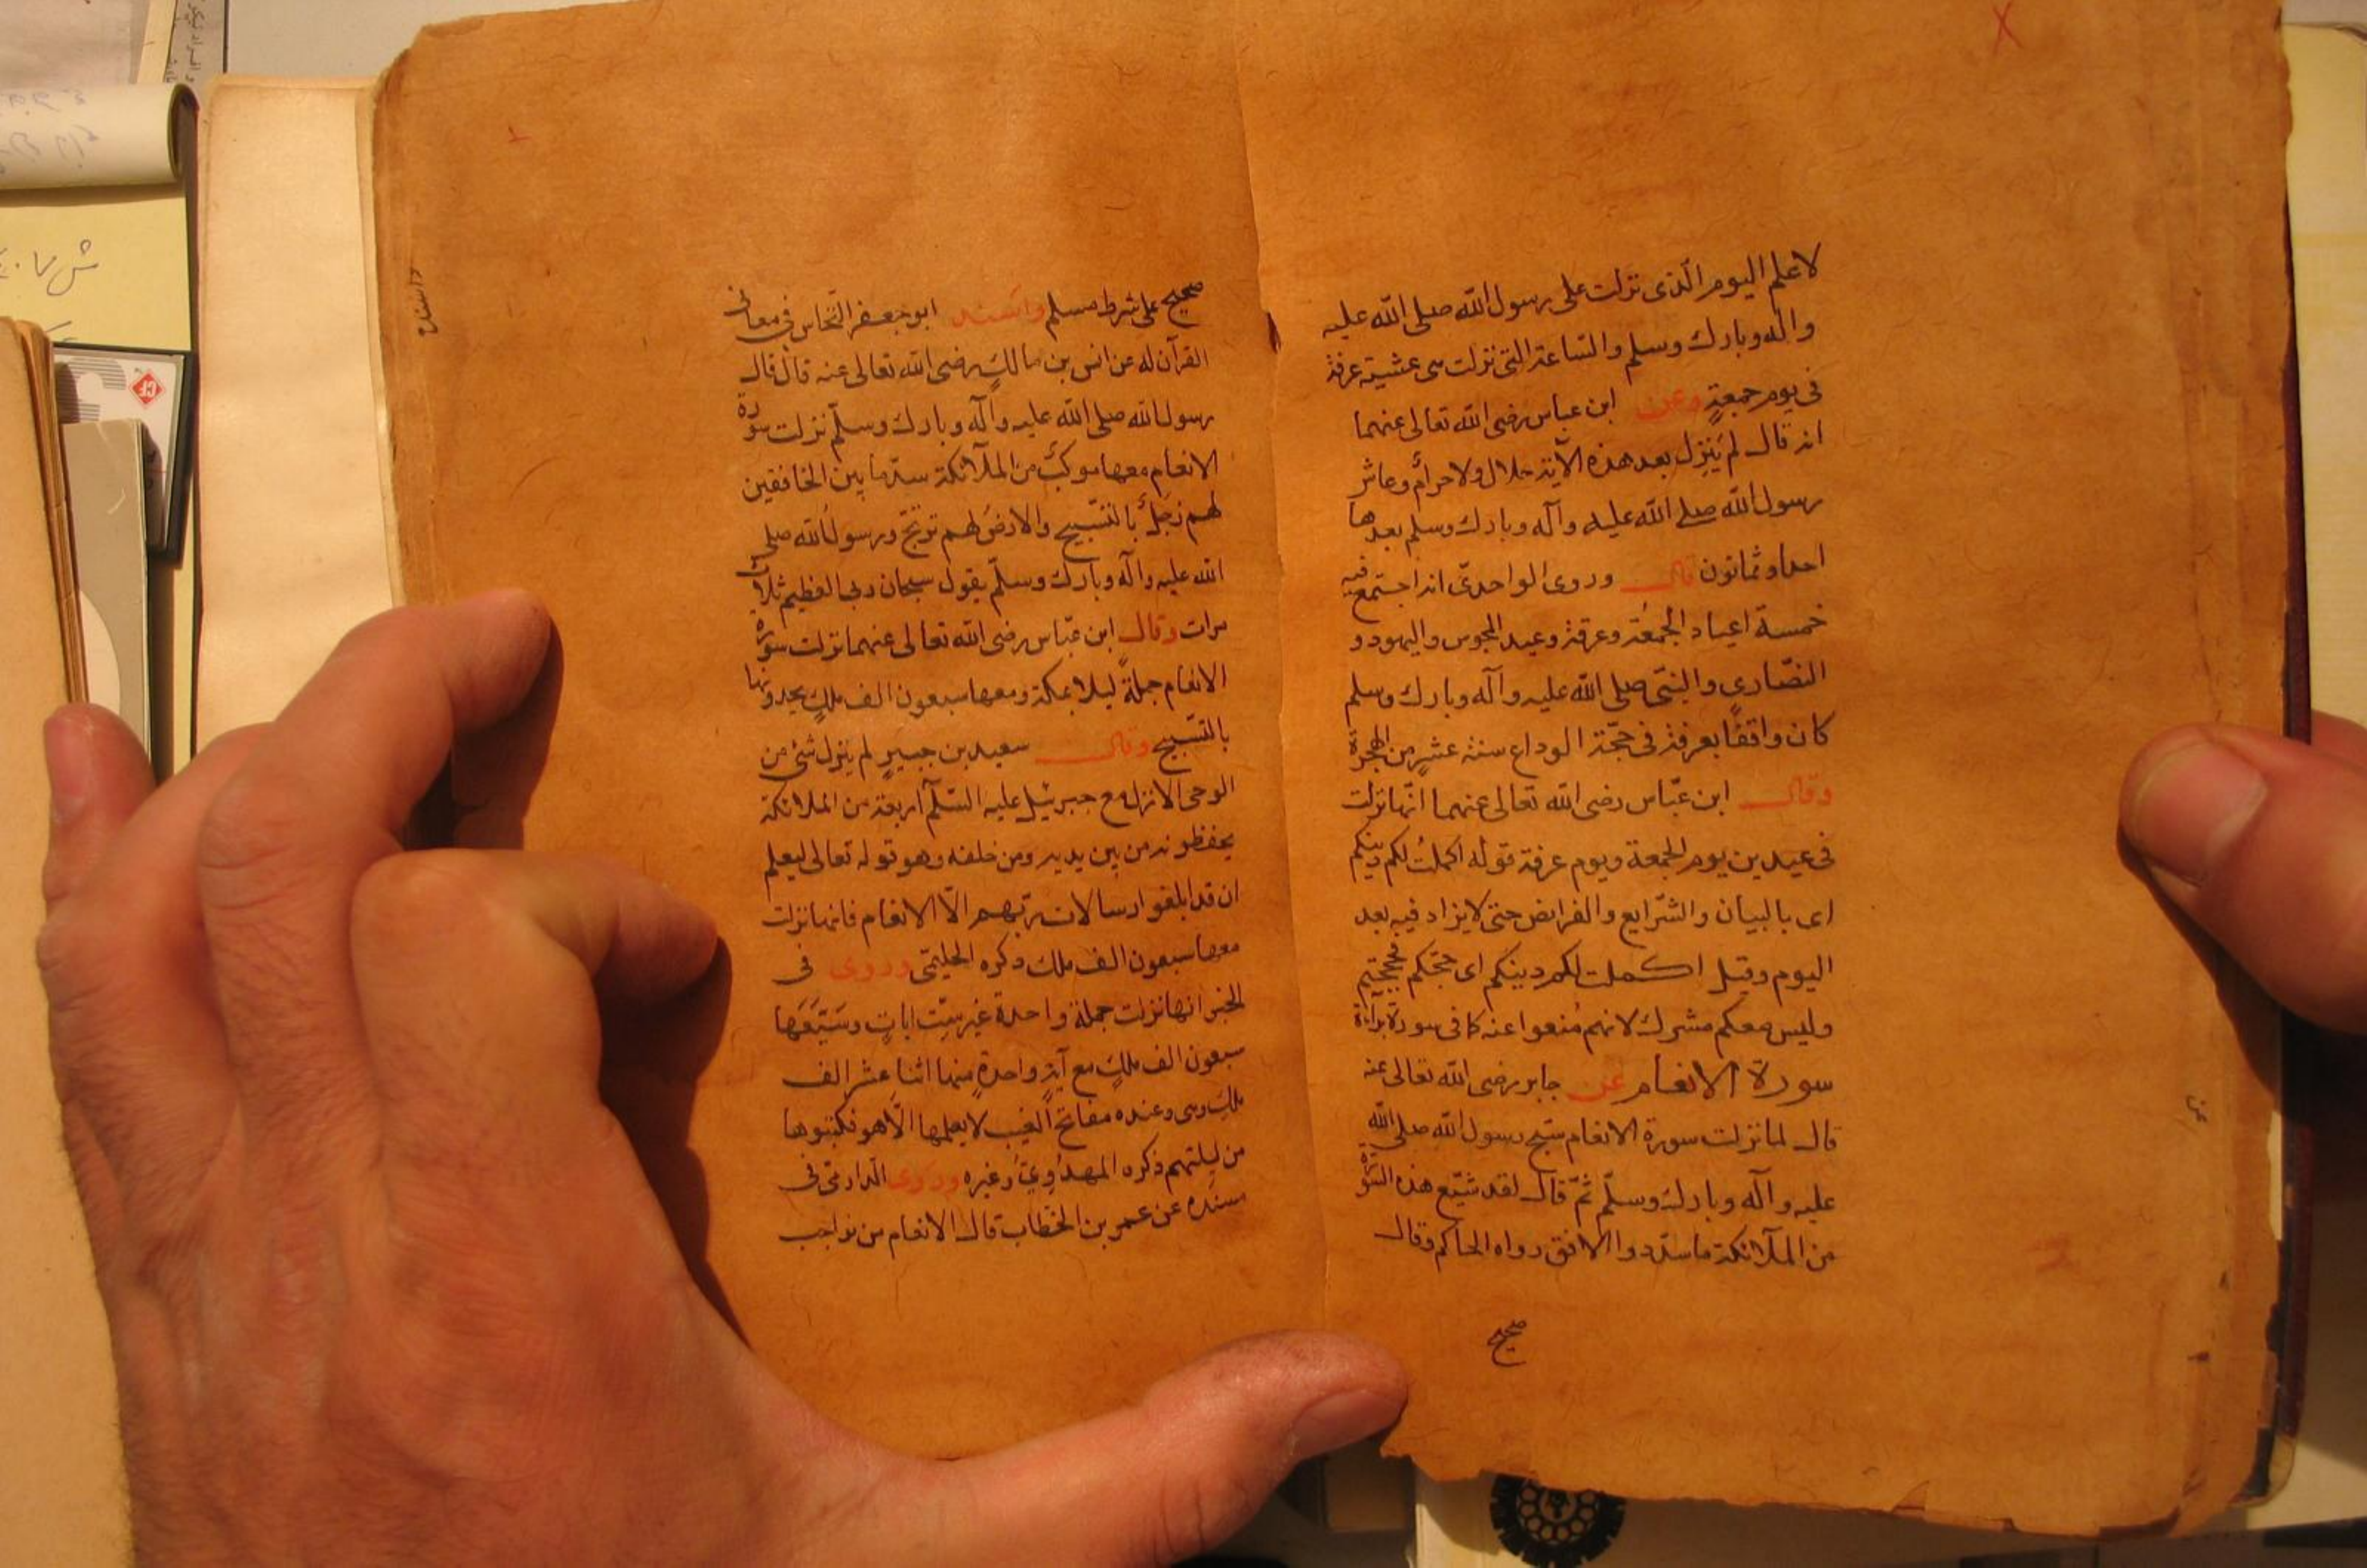 لاعلم اليوم الّذى نزلت على رسول الله صلى الله عليه
واله وبارك وسلم والسّاعة التى نزلت هى عشية عرفة
فى يوم جمعةٍ وعن ابن عباس رضى الله تعالى عنهما
انه قال لم يَنزِل بعد هذه الآية حلال ولا حرامٌ وعاش
رسول الله صلے الله عليه وآله وبارك وسلم بعدها
احدا وثمانون قال وروى الواحدىّ انه اجتمع فيه
خمسة اعياد الجُمعُة وعرفة وعيد المجوس واليهود و
النصّارى والنبّى صلى الله عليه وآله وبارك وسلم
كان واقفًا بعرفة فى حجّة الوداع سنة عشرٍ من الهجرة
وقال ابن عبّاس رضى الله تعالى عنهما انّها نزلت
فى عيدين يوم الجمعة ويوم عرفة قوله اكملتُ لكم دينكم
اى بالبيان والشّرايع والفرايض حتى لا يزاد فيه بعد
اليوم وقيل اكملت لكم دينكم اى حجّكم فحججتم
وليس معكم مشرك لانهم مُنعوا عنه كما فى سورة براءة
سورة الانعام عن جابر رضى الله تعالى عنه
قال لما نزلت سورة الانعام سبّح رسول الله صلى الله
عليه وآله وبارك وسلّم ثمّ قال لقد شيّع هذه السّورة
من الملآئكة ما سدّوا الافق رواه الحاكم وقال
صحيح
صحيح على شرط مسلم واسند ابو جعفر النّحاس فى معانى
القرآن له عن انس بن مالكٍ رضى الله تعالى عنه قال قال
رسول الله صلى الله عليه وآله وبارك وسلّم نزلت سورة
الانعام معها موكبٌ من الملآئكة سدّ ما بين الخافقين
لهم زَجَلٌ بالتسّبيح والارضُ لهم ترتجّ ورسولُ الله صلى
الله عليه وآله وبارك وسلّم يقول سبحان ربى العظيم ثلاث
مرات وقال ابن عبّاس رضى الله تعالى عنهما نزلت سورة
الانعام جملةً ليلا بمكة ومعها سبعون الف ملكٍ يحدونها
بالتسّبيح وقال سعيد بن جبيرٍ لم ينزل شئ من
الوحى الا نزل مع جبرئيل عليه السّلم اربعة من الملائكة
يحفظونه من بين يديه ومن خلفه وهو قوله تعالى ليعلم
ان قد ابلغوا رسالات ربّهم الّا الانعام فانها نزلت
معها سبعون الف ملك ذكره الحليمّى وروى فى
الخبر انها نزلت جملة واحدة غير سِتّ اياتٍ وشَيّعَها
سبعون الف ملكٍ مع آيةٍ واحدةٍ منها اثنا عشر الف
ملكٍ وهى وعنده مفاتح الغيب لا يعلمها الّا هو فكتبوها
من ليلتهم ذكره المهدَوِىّ وغيره وروى الدّارمّى فى
مسنده عن عمر بن الخطاب قال الانعام من نواجب